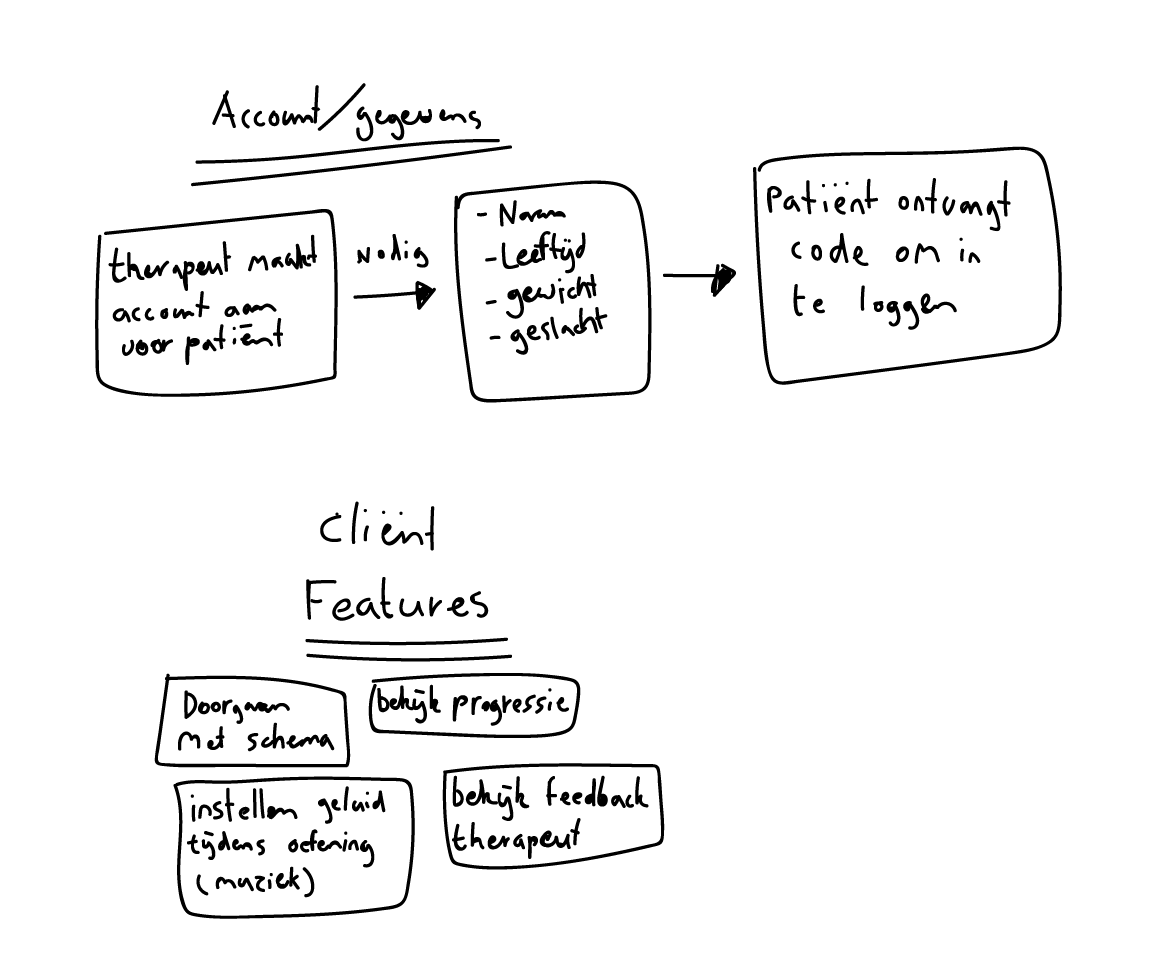 Account/gegevens
therapeut maakt
account aan
voor patiënt
nodig
- Naam
- Leeftijd
- gewicht
- geslacht
Patiënt ontvangt
code om in
te loggen
Cliënt
Features
Doorgaan
met schema
bekijk progressie
instellen geluid
tijdens oefening
(muziek)
bekijk feedback
therapeut